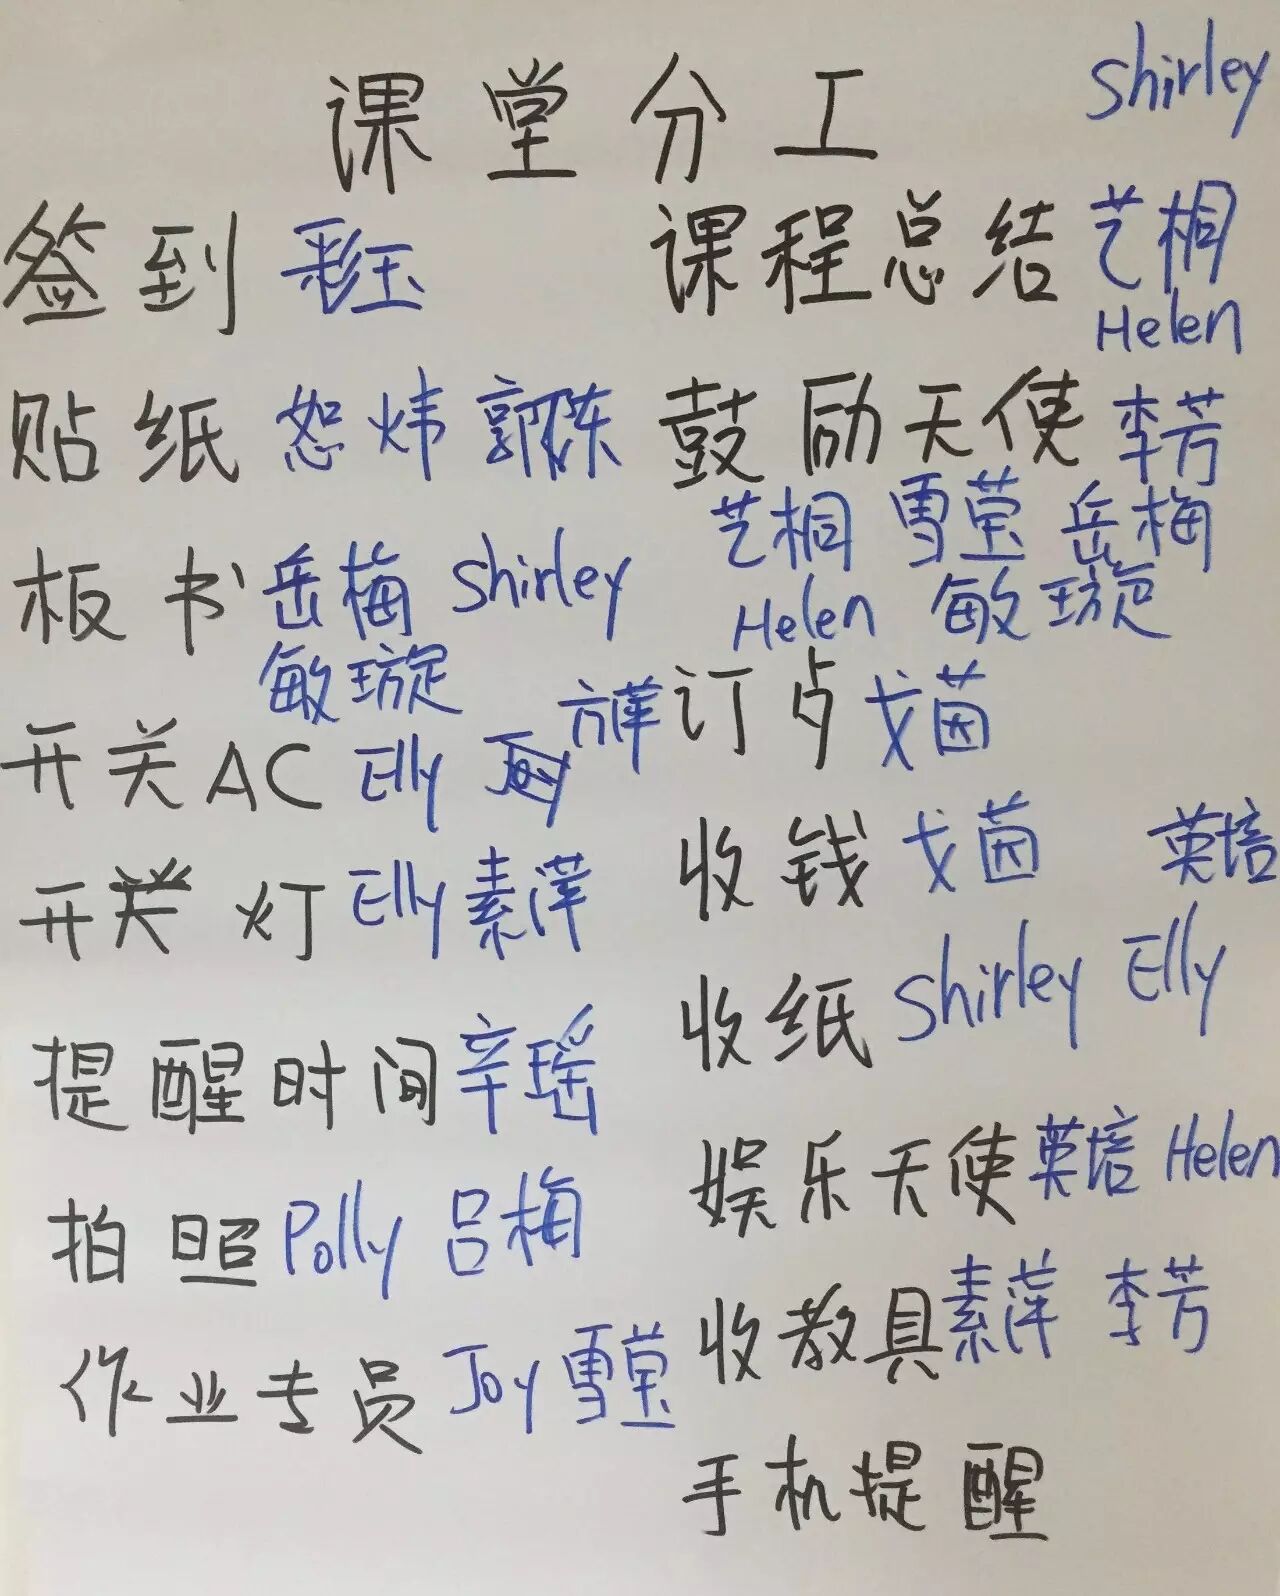 课堂分工
签到 彩玉
贴纸 恕炜 郭陈
板书 岳梅 Shirley
敏璇
开关AC Elly
开关灯 Elly 素萍
提醒时间 辛瑶
拍照 Polly 吕梅
作业专员 Joy 雪莹
Shirley
课程总结 艺桐
Helen
鼓励天使 李芳
艺桐 雪莹 岳梅
Helen 敏璇
订 戈茵
收钱 戈茵 英培
收纸 Shirley Elly
娱乐天使 英培 Helen
收教具 素萍 李芳
手机提醒